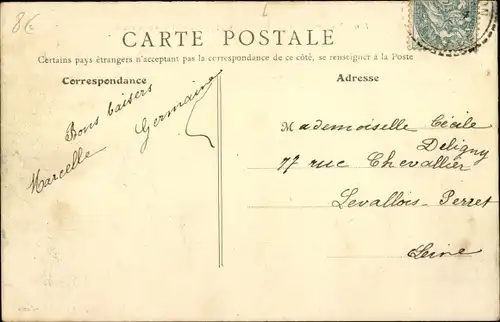 CARTE POSTALE
Certains pays étrangers n'acceptant pas la correspondance de ce côté, se renseigner à la Poste
Correspondance
Adresse
Bons baisers
Marcelle Germaine
Mademoiselle Cécile
Deligny
77 rue Chevallier
Levallois-Perret
Seine